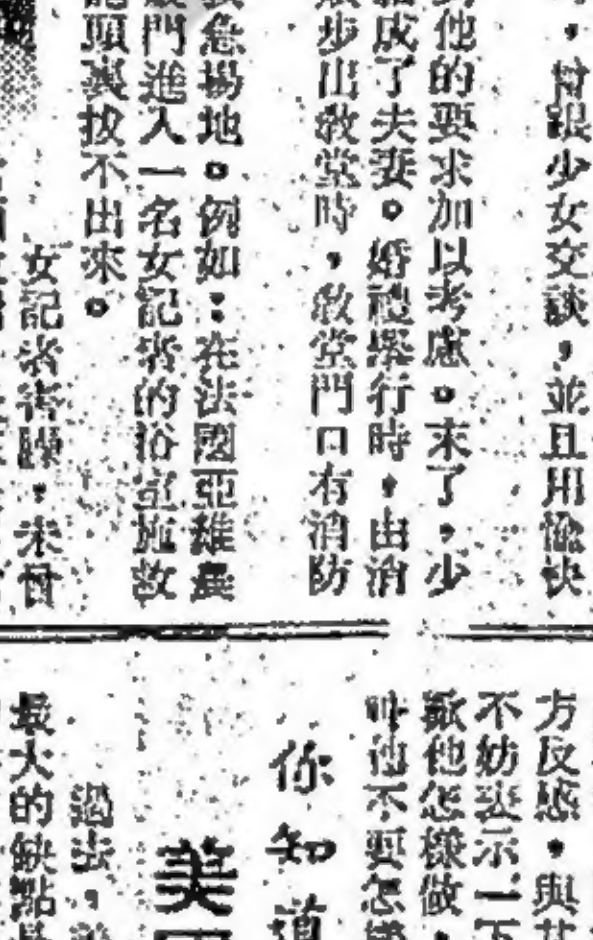 曾跟少女交談，並且用愉快
他的要求加以考慮。末了，少
成了夫妻。婚禮舉行時，由消
步出教堂時，教堂門口有消防
急場地。例如：在法國亞維農
門進入一名女記者的浴室施救
頭裏拔不出來。
女記者害臊，未曾
方反感，與其
不妨表示一下
歡他怎樣做，
叫他不要怎樣
你知道
美國
過去，
最大的缺點是